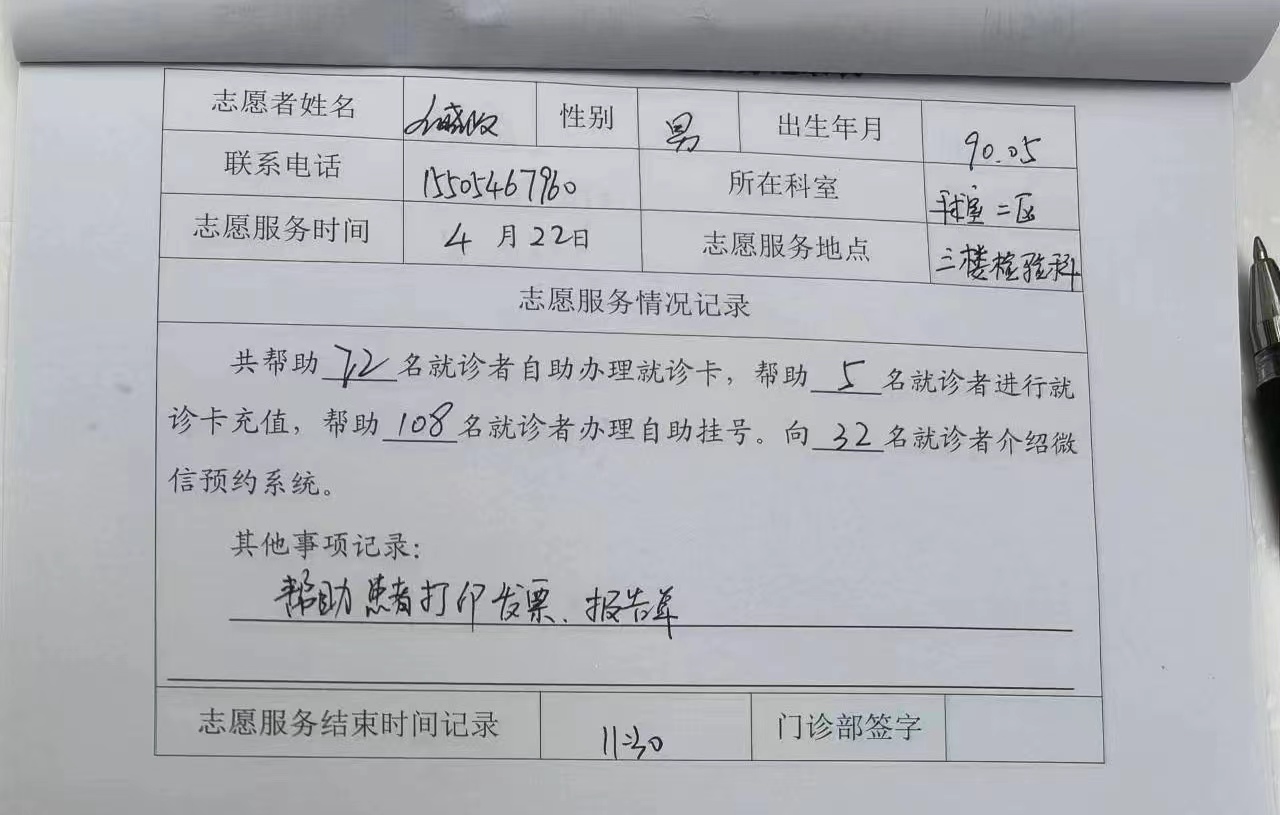 志愿者姓名 性别 男 出生年月 90.05
联系电话 15505467960 所在科室 二区
志愿服务时间 4月22日 志愿服务地点 三楼检验科
志愿服务情况记录
共帮助72名就诊者自助办理就诊卡，帮助5名就诊者进行就
诊卡充值，帮助108名就诊者办理自助挂号。向32名就诊者介绍微
信预约系统。
其他事项记录：
帮助患者打印发票、报告单
志愿服务结束时间记录 11:30 门诊部签字